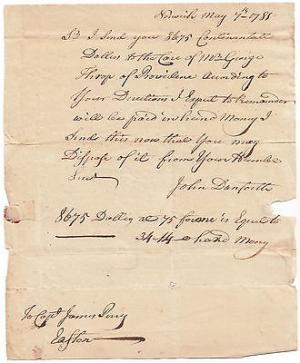 Norwich May 7th 1781
Sr I Send you 8675 Continental
Dollers to the Care of Mr George
Throp of Providence According to
Your Directions I Expect the remander
will be paid in hard Money I
Send this now that You may
Disspose of it from Your Humble
Servt
John Danforth
8675 Dollers at 75 for one is Equal to
34-14 hard Mony
To Capt James Perry
Easton